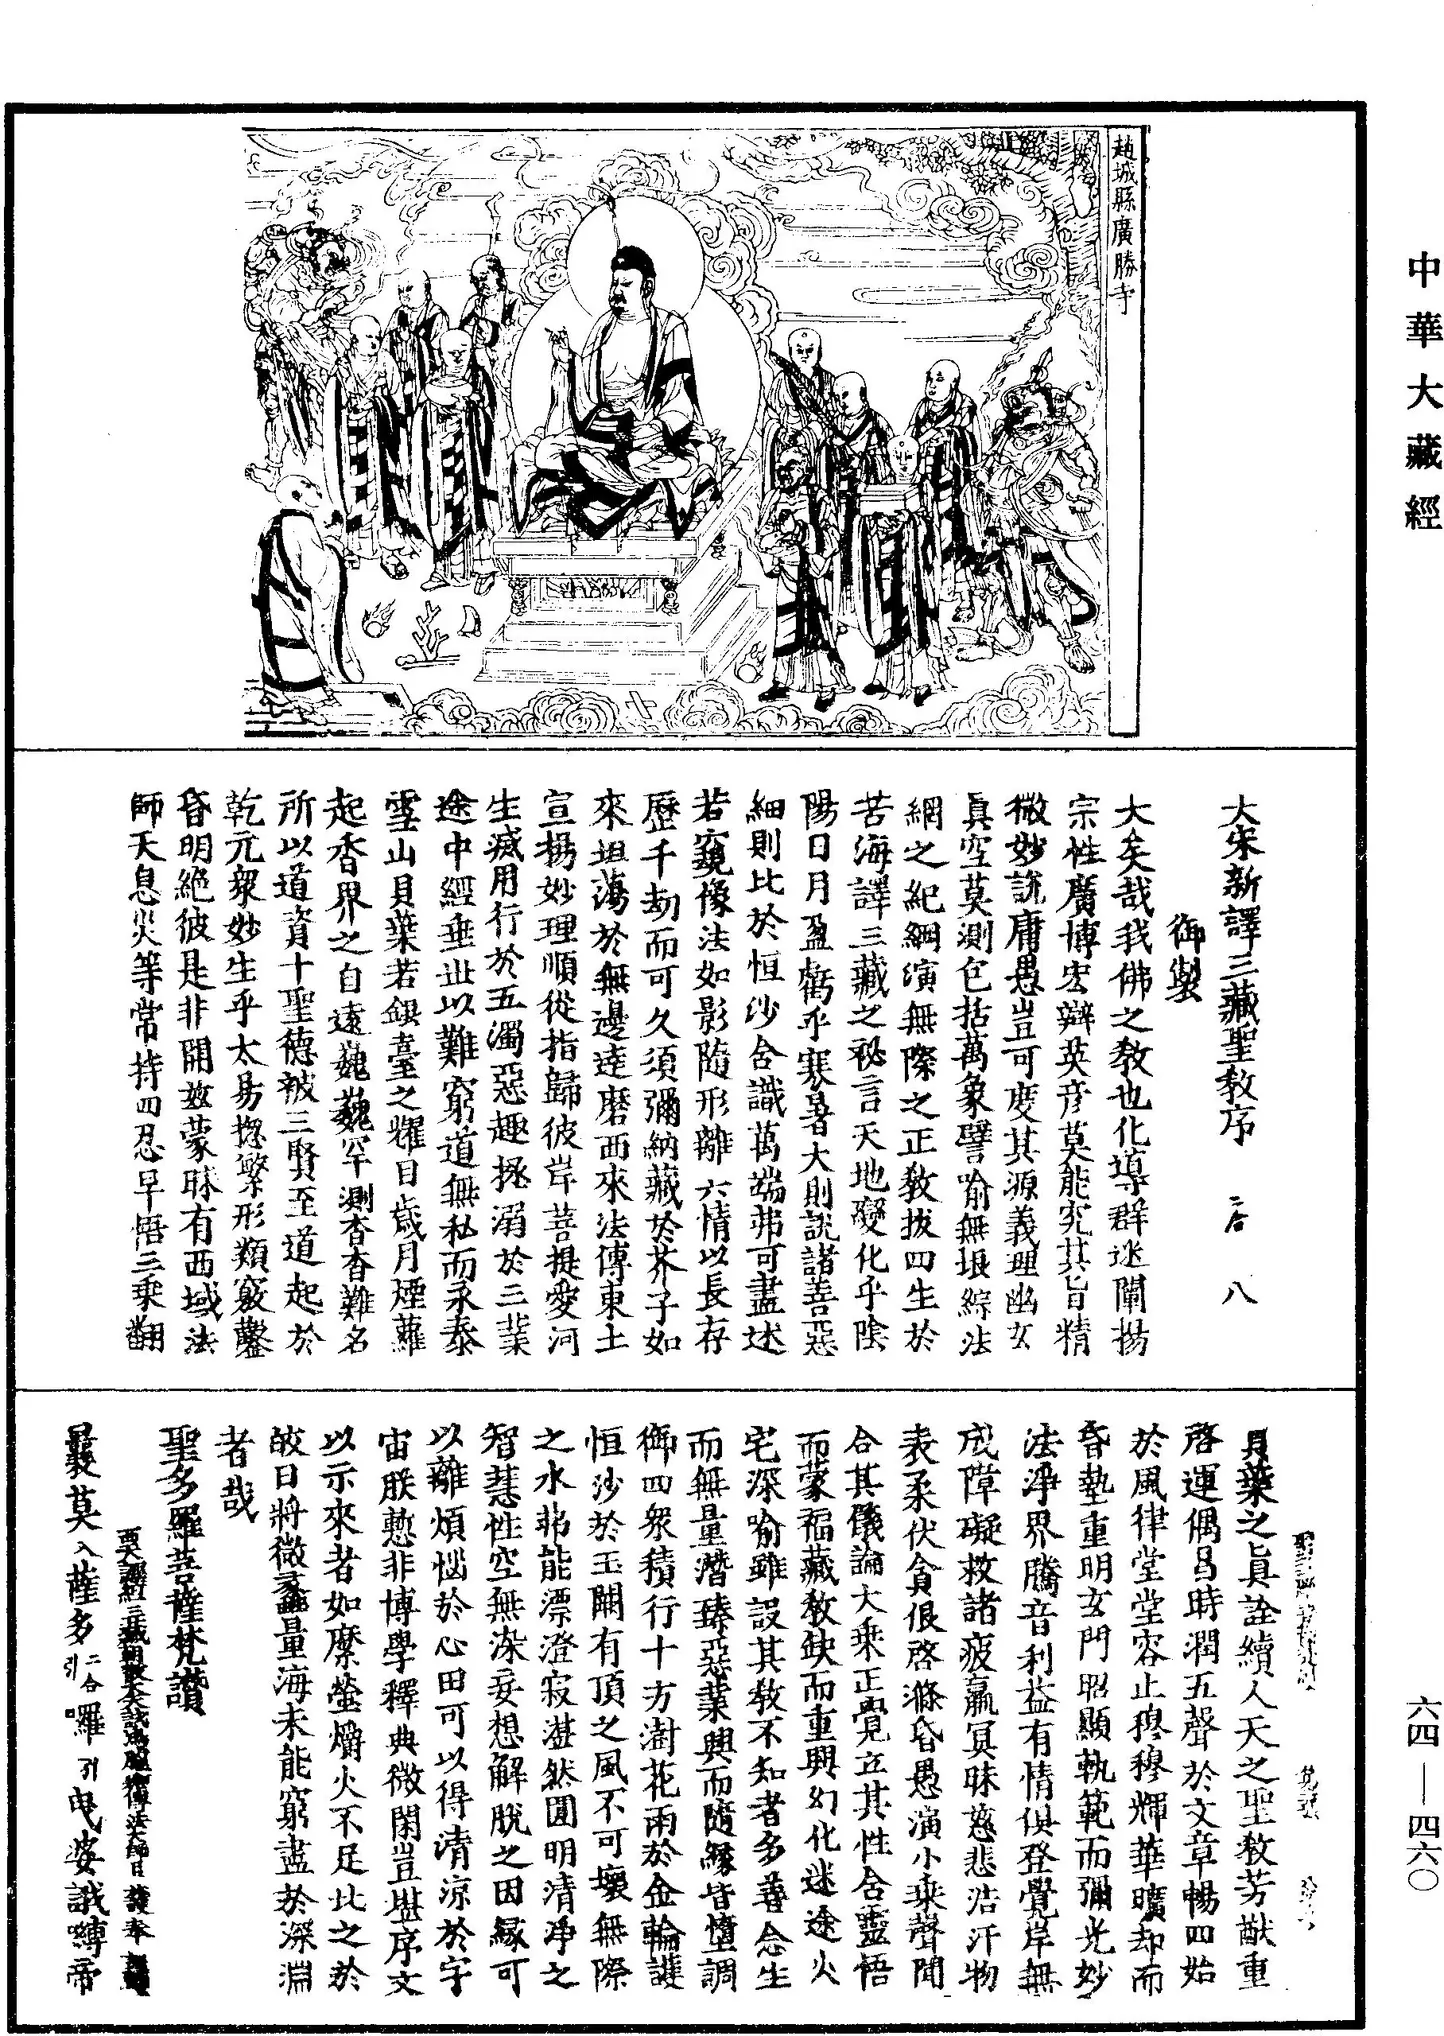 中華大藏經
趙城縣廣勝寺
大宋新譯三藏聖教序 二合 八
御製
大矣哉我佛之教也化導群迷闡揚
宗性廣博宏辯英彦莫能究其旨精
微妙說庸愚豈可度其源義理幽玄
真空莫測包括萬象譬喻無垠綜法
網之紀綱演無際之正教拔四生於
苦海譯三藏之祕言天地變化乎陰
陽日月盈虧乎寒暑大則說諸善惡
細則比於恒沙含識萬端弗可盡述
若窺像法如影隨形離六情以長存
歷千劫而可久須彌納藏於芥子如
來坦蕩於無邊達磨西來法傳東土
宣揚妙理順從指歸彼岸菩提愛河
生滅用行於五濁惡趣拯溺於三業
途中經垂世以難窮道無私而永泰
雪山貝葉若銀臺之耀目歲月煙蘿
起香界之自遠巍巍罕測杳杳難名
所以道資十聖德被三賢至道起於
乾元衆妙生乎太易揔繁形類竅鑿
昏明絶彼是非開兹蒙昧有西域法
師天息災等常持四忍早悟三乘翻
貝葉之真詮續人天之聖教芳猷重
啓運偶昌時潤五聲於文章暢四始
於風律堂堂容止穆穆輝華曠却而
昏墊重明玄門昭顯執範而彌光妙
法淨界騰音利益有情俱登覺岸無
成障礙救諸疲羸冥昧慈悲浩汗物
表柔伏貪佷啓滌昏愚演小乘聲聞
合其儀論大乘正覺立其性含靈悟
而蒙福藏教缺而重興幻化迷途火
宅深喻雖設其教不知者多善念生
而無量潛臻惡業興而隨緣皆墮調
御四衆積行十方澍花雨於金輪護
恒沙於玉闕有頂之風不可壞無際
之水弗能漂澄寂湛然圓明清淨之
智慧性空無染妄想解脫之因緣可
以離煩惱於心田可以得清涼於宇
宙朕慙非博學釋典微閑豈堪序文
以示來者如縻螢爝火不足比之於
皎日將微蠡量海未能窮盡於深淵
者哉
聖多羅菩薩梵讚
曩莫入薩多二合引囉引曳婆誐嚩帝
六四—四六〇